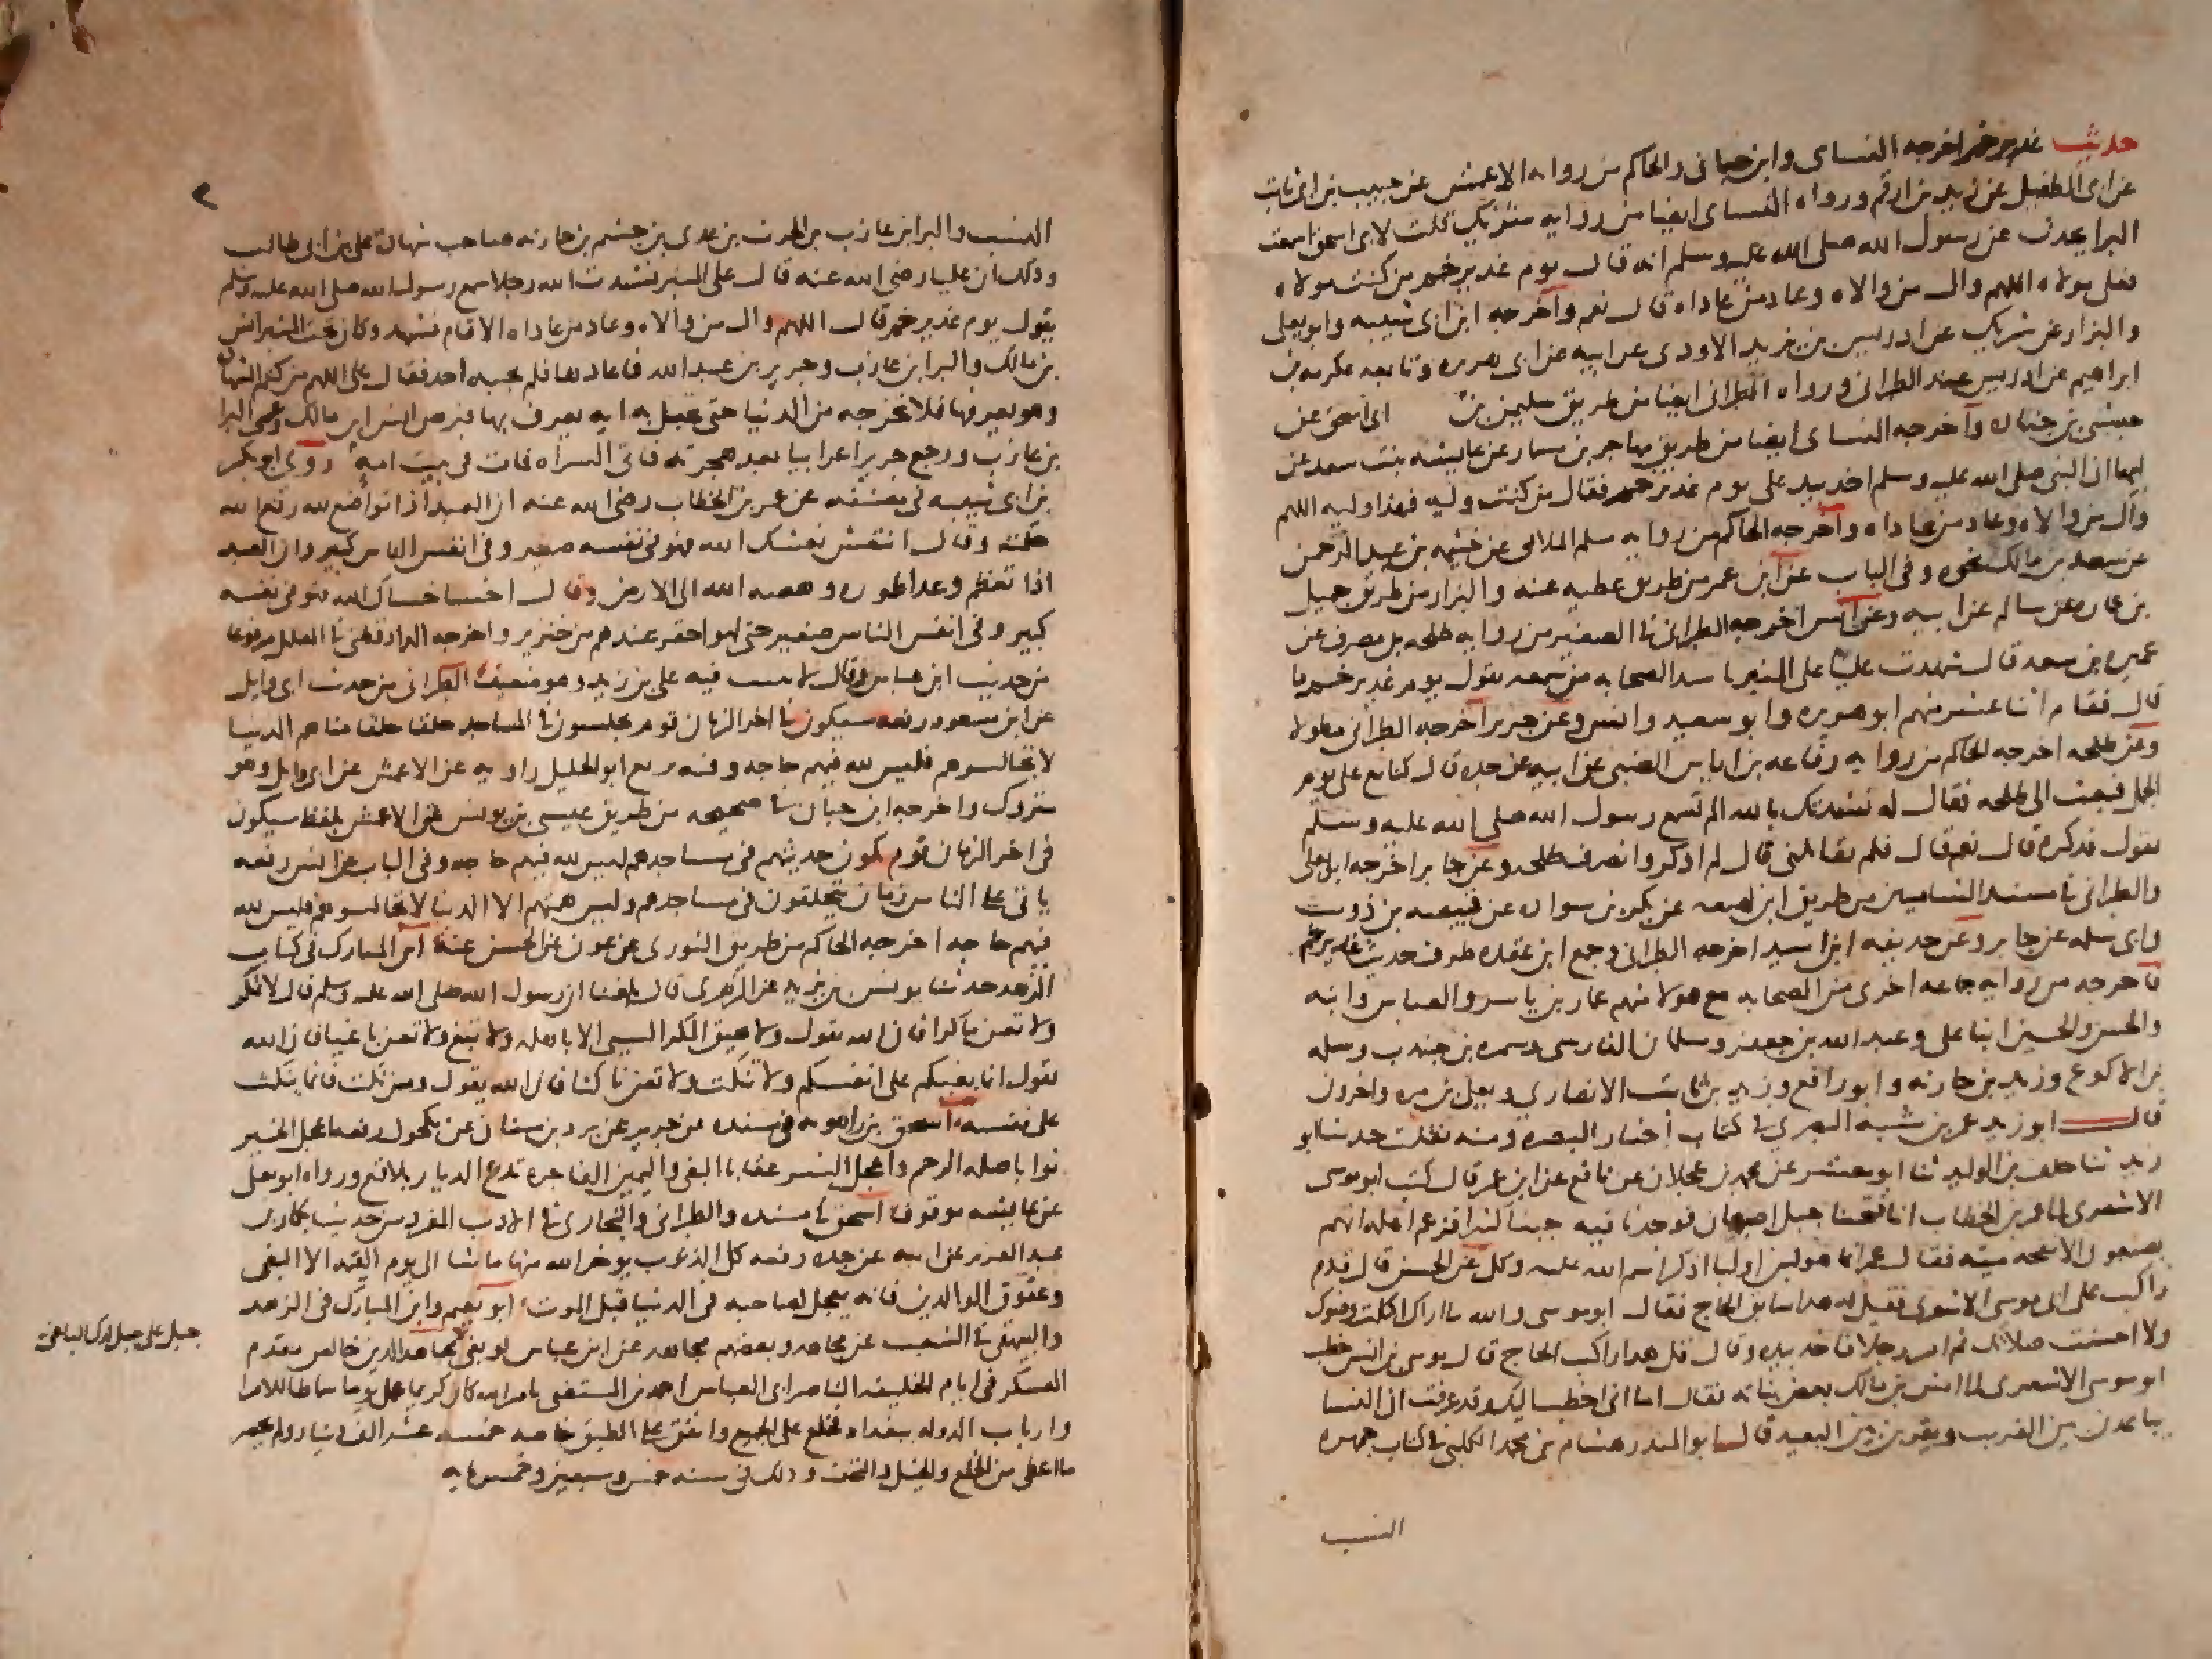 حديث غدير خم اخرجه النساى وابن حبان والحاكم من روايه الاعمش عن حبيب بن ابى ثابت
عن ابى الطفيل عن زيد بن ارقم ورواه النساى ايضا من روايه شريك قلت لابى اسحق اسمعت
البرا يحدث عن رسول الله صلى الله عليه وسلم انه قال يوم غدير خم من كنت مولاه
فعلى مولاه اللهم وال من والاه وعاد من عاداه قال نعم وأخرجه ابن ابى شيبه وابو يعلى
والبزار عن شريك عن ادريس بن يزيد الاودى عن ابيه عن ابى هريره وتابعه عكرمه بن
ابراهيم عن ادريس عند الطبرانى ورواه الطبرانى ايضا من طريق سليمن بن ابى اسحق عن
حبشى بن جناده وأخرجه النساى ايضا من طريق مهاجر بن مسمار عن عايشه بنت سعد عن
ابيها ان النبى صلى الله عليه وسلم اخذ بيد على يوم غدير خم فقال من كنت وليه فهذا وليه اللهم
وال من والاه وعاد من عاداه وأخرجه الحاكم من روايه مسلم الملائى عن خيثمه بن عبد الرحمن
عن سعد بن مالك نحوه وفى الباب عن ابن عمر من طريق عطيه عنه والبزار من طريق جميل
بن عماره عن سالم عن ابيه وعن انس اخرجه الطبرانى فى الصغير من روايه طلحه بن مصرف عن
عميره بن سعد قال شهدت عليا على المنبر ناشد الصحابه من سمعه يقول يوم غدير خم ما
قال فقام اثنا عشر منهم ابو هريره وابو سعيد وانس وعن جرير اخرجه الطبرانى مطولا
وعن طلحه اخرجه الحاكم من روايه رفاعه بن اياس الضبى عن ابيه عن جده قال كنا مع على يوم
الجمل فبعث الى طلحه فقال له نشدتك بالله الم تسمع رسول الله صلى الله عليه وسلم
يقول فذكره قال نعم قال فلم تقاتلنى قال لم اذكر وانصرف طلحه وعن جابر اخرجه ابو يعلى
والطبرانى فى مسند الشاميين من طريق ابن لهيعه عن بكر بن سواده عن قبيصه بن ذويب
وابى سلمه عن جابر وعن حذيفه ابن اسيد اخرجه الطبرانى وجمع ابن عقده طرف حديث غدير خم
فاخرجه من روايه جماعه اخرى من الصحابه مع هولا منهم عمار بن ياسر والعباس وابنه
والحسن والحسين ابنا على وعبد الله بن جعفر وسلمان الفارسى وسمره بن جندب وسلمه
بن الاكوع وزيد بن حارثه وابو رافع وزيد بن ثابت الانصارى ويعلى بن مره واخرون
قال ابو زيد عمر بن شبه النميرى فى كتاب أخبار البصره ومنه نقلت حدثنا ابو
زيد ثنا خلف بن الوليد ثنا ابو معشر عن محمد بن عجلان عن نافع عن ابن عمر قال كتب ابو موسى
الاشعرى الى عمر بن الخطاب انا فتحنا جبل اصبهان فوجدنا فيه جبنا كثيرا فزعم اهله انهم
يصنعون الانفحه ميته فقال عمر انما هو لبن اولبا اذكر اسم الله عليه وكل عن الحسن قال قدم
راكب على ابى موسى الاشعرى فقيل له هذا سابق الحاج فقال ابو موسى والله ما اراك اكلت وضوك
ولا احسنت صلاتك ثم امر رجلا فاخذ بيده وقال قل هذا راكب الحاج قال يونس بن انس خطب
ابو موسى الاشعرى الى انس بن مالك بعض بناته فقال اما انى اخطب اليك وقد عرفت ان النسا
يباعدن من القريب ويقربن من البعيد قال ابو المنذر هشام بن محمد الكلبى فى كتاب جمهره
النسب
٢
النسب والبرا بن عازب بن الحرث بن عدى بن جشم بن حارثه صاحب شهاده على بن ابى طالب
وذلك ان عليا رضى الله عنه قال على المنبر نشدت الله رجلا سمع رسول الله صلى الله عليه وسلم
يقول يوم غدير خم قال اللهم وال من والاه وعاد من عاداه الا قام فشهد وكان تحت المنبر انس
بن مالك والبرا بن عازب وجرير بن عبد الله فاعادها فلم يجبه احد فقال على اللهم من كتم الشهاده
وهو يعرفها فلا تخرجه من الدنيا حتى تجعل به ايه يعرف بها فبرص انس ابن مالك وعمى البرا
بن عازب ورجع جرير اعرابيا بعد هجرته فاتى السراه فمات فى بيت امه روى ابو بكر
بن ابى شيبه فى مصنفه عن عمر بن الخطاب رضى الله عنه ان العبد اذا تواضع لله رفع الله
حكمته وقال انتعش نعشك الله فهو فى نفسه صغير وفى انفس الناس كبير وان العبد
اذا تعظم وعدا طوره وهصه الله الى الارض وقال اخسا خساك الله فهو فى نفسه
كبير وفى انفس الناس صغير حتى لهو احقر عندهم من خنزير واخرجه الدارقطنى فى العلل مرفوعا
من حديث ابن عباس وقال لا يثبت فيه على بن زيد وهو ضعيف الطبرانى من حديث ابى وايل
عن ابن مسعود رفعه سيكون فى اخر الزمان قوم يجلسون فى المساجد حلقا حلقا مناهم الدنيا
لا تجالسوهم فليس لله فيهم حاجه وفيه بزيع ابو الخليل راويه عن الاعمش عن ابى وايل وهو
متروك واخرجه ابن حبان فى صحيحه من طريق عيسى بن يونس عن الاعمش بلفظ سيكون
فى اخر الزمان قوم يكون حديثهم فى مساجدهم ليس لله فيهم حاجه وفى الباب عن انس رفعه
ياتى على الناس زمان يتحلقون فى مساجدهم وليس همتهم الا الدنيا لا تجالسوهم فليس لله
فيهم حاجه اخرجه الحاكم من طريق الثورى عن عون عن الحسن عنه ابن المبارك فى كتاب
الزهد حدثنا يونس بن يزيد عن الزهرى قال بلغنا ان رسول الله صلى الله عليه وسلم قال لا تمكر
ولا تعن ماكرا فان الله يقول ولا يحيق المكر السيى الا باهله ولا تبغ ولا تعن باغيا فان الله
يقول انما بغيكم على انفسكم ولا تنكث ولا تعن ناكثا فان الله يقول ومن نكث فانما ينكث
على نفسه اسحق بن راهويه فى مسنده عن جرير عن برد بن سنان عن مكحول رفعه اعجل الخير
ثوابا صله الرحم واعجل الشر عقابا البغى واليمين الفاجره تدع الديار بلاقع ورواه ابو يعلى
عن عايشه موقوفا اسحق فى مسنده والطبرانى والبخارى فى الادب المفرد من حديث بكار بن
عبد العزيز عن ابيه عن جده رفعه كل الذنوب يوخر الله منها ما شا الى يوم القيمه الا البغى
وعقوق الوالدين فانه يعجل لصاحبه فى الدنيا قبل الموت ابو نعيم وابن المبارك فى الزهد
والبيهقى فى الشعب عن مجاهد وبعضهم مجاهد عن ابن عباس لو بغى مجاهد الدين خالص مقدم
جبل على جبل لدك الباغى
العسكر فى ايام الخليفه الناصر ابى العباس احمد بن المستضى بامر الله كان كريما عمل يوما سماطا للامرا
وارباب الدوله ببغداد فخلع على الجميع وانفق على الطبق خاصه خمسه عشر الف دينار ولم يحصر
ما اعطى من الخلع والخيل والتحف وذلك فى سنه خمس وسبعين وخمسمايه